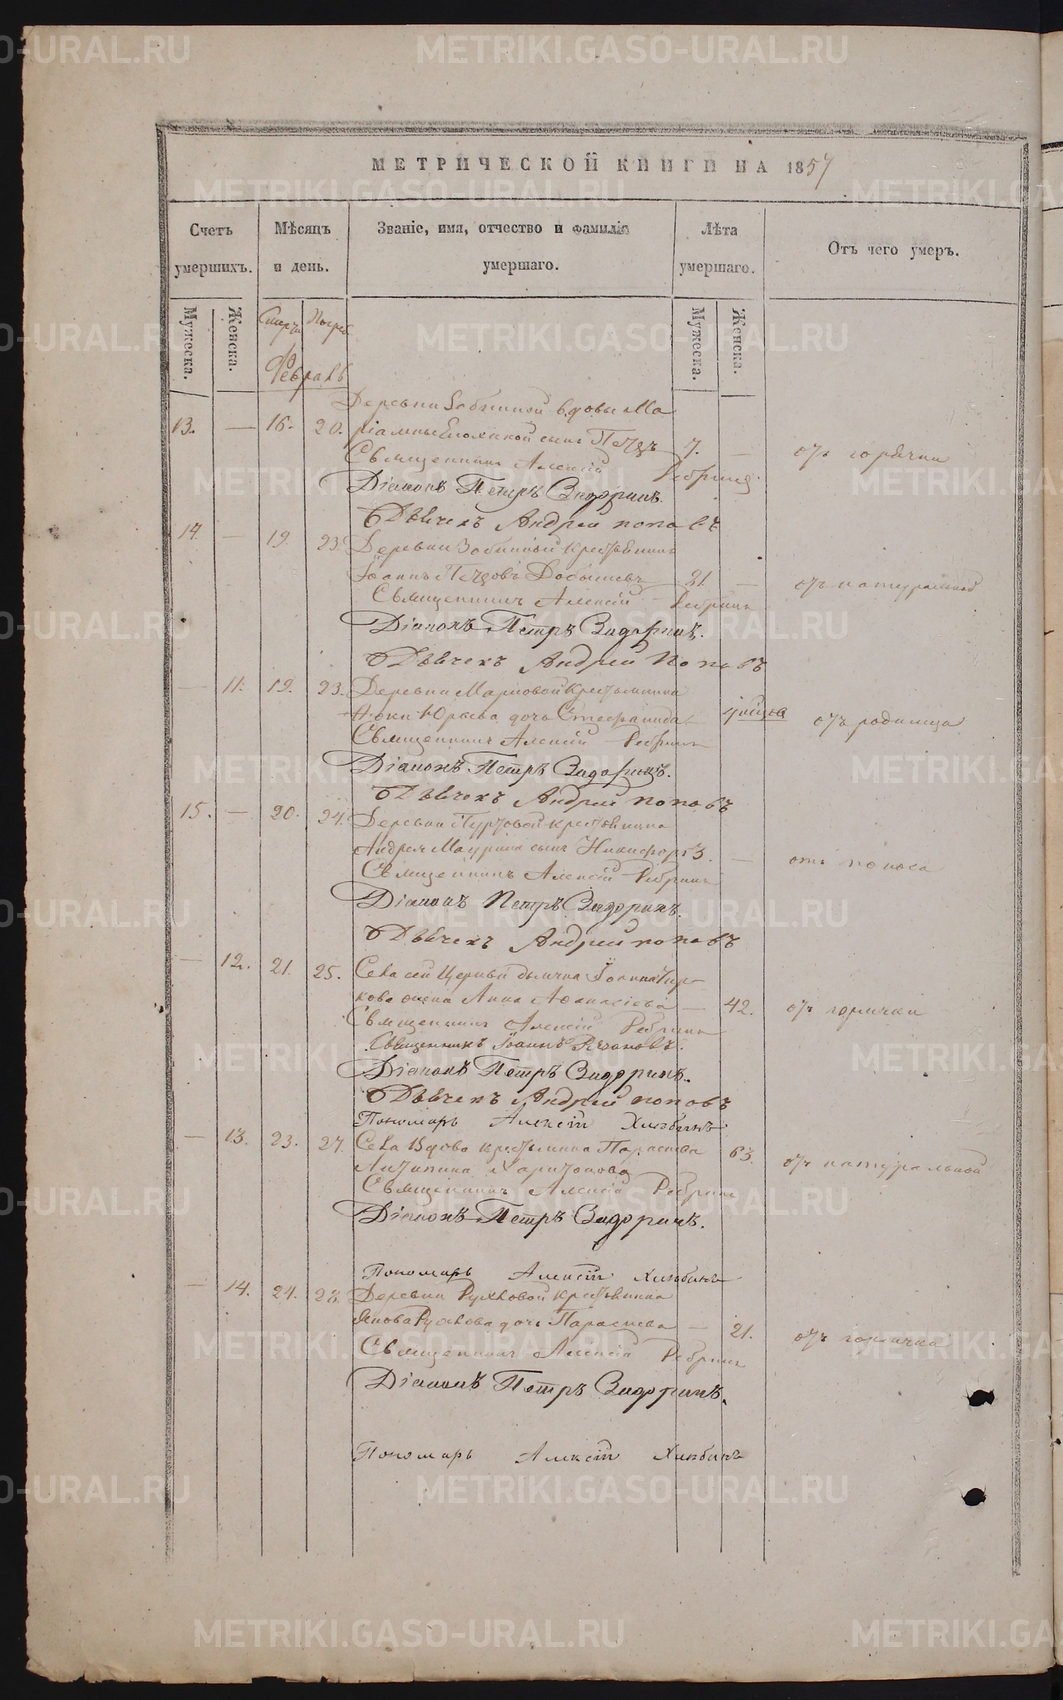 МЕТРИЧЕСКОЙ КНИГИ НА 1857
Счетъ умершихъ.
Мѣсяцъ и день.
Званіе, имя, отчество и фамилія умершаго.
Лѣта умершаго.
Отъ чего умеръ.
Мужеска.
Женска.
Мужеска.
Женска.
Февраль
Деревни вдовы Ма
13. — 16. 20. сынъ Петръ 7. — отъ горячки
Священникъ Алексій Ребринъ
Діаконъ Петръ Задоринъ.
Дьячекъ Андрей Поповъ
14 — 19 23. Деревни крестьянинъ
Іоаннъ Петровъ 31 — отъ натуральной
Священникъ Алексій Ребринъ
Діаконъ Петръ Задоринъ.
Дьячекъ Андрей Поповъ
— 11. 19. 23. Деревни крестьянина
Юрьева дочь Стефанида отъ родимца
Священникъ Алексій Ребринъ
Діаконъ Петръ Задоринъ.
Дьячекъ Андрей Поповъ
15. — 20. 24. Деревни крестьянина
Андрея сынъ Никифоръ 3. — отъ поноса
Священникъ Алексій Ребринъ
Діаконъ Петръ Задоринъ.
Дьячекъ Андрей Поповъ
— 12. 21. 25. Села сей Церкви дьячка Іоанна
жена Анна Афанасіева — 42. отъ горячки
Священникъ Алексій Ребринъ
Священникъ Іоаннъ
Діаконъ Петръ Задоринъ.
Дьячекъ Андрей Поповъ
Пономарь Алексій Хлѣбинъ
— 13. 23. 27. Села вдова крестьянка Параскева 63. отъ натуральной
Антипина Харитонова
Священникъ Алексій Ребринъ
Діаконъ Петръ Задоринъ.
Пономарь Алексій Хлѣбинъ
— 14. 24. 28. Деревни крестьянина
дочь Параскева — 21. отъ горячки
Священникъ Алексій Ребринъ
Діаконъ Петръ Задоринъ.
Пономарь Алексій Хлѣбинъ
METRIKI.GASO-URAL.RU